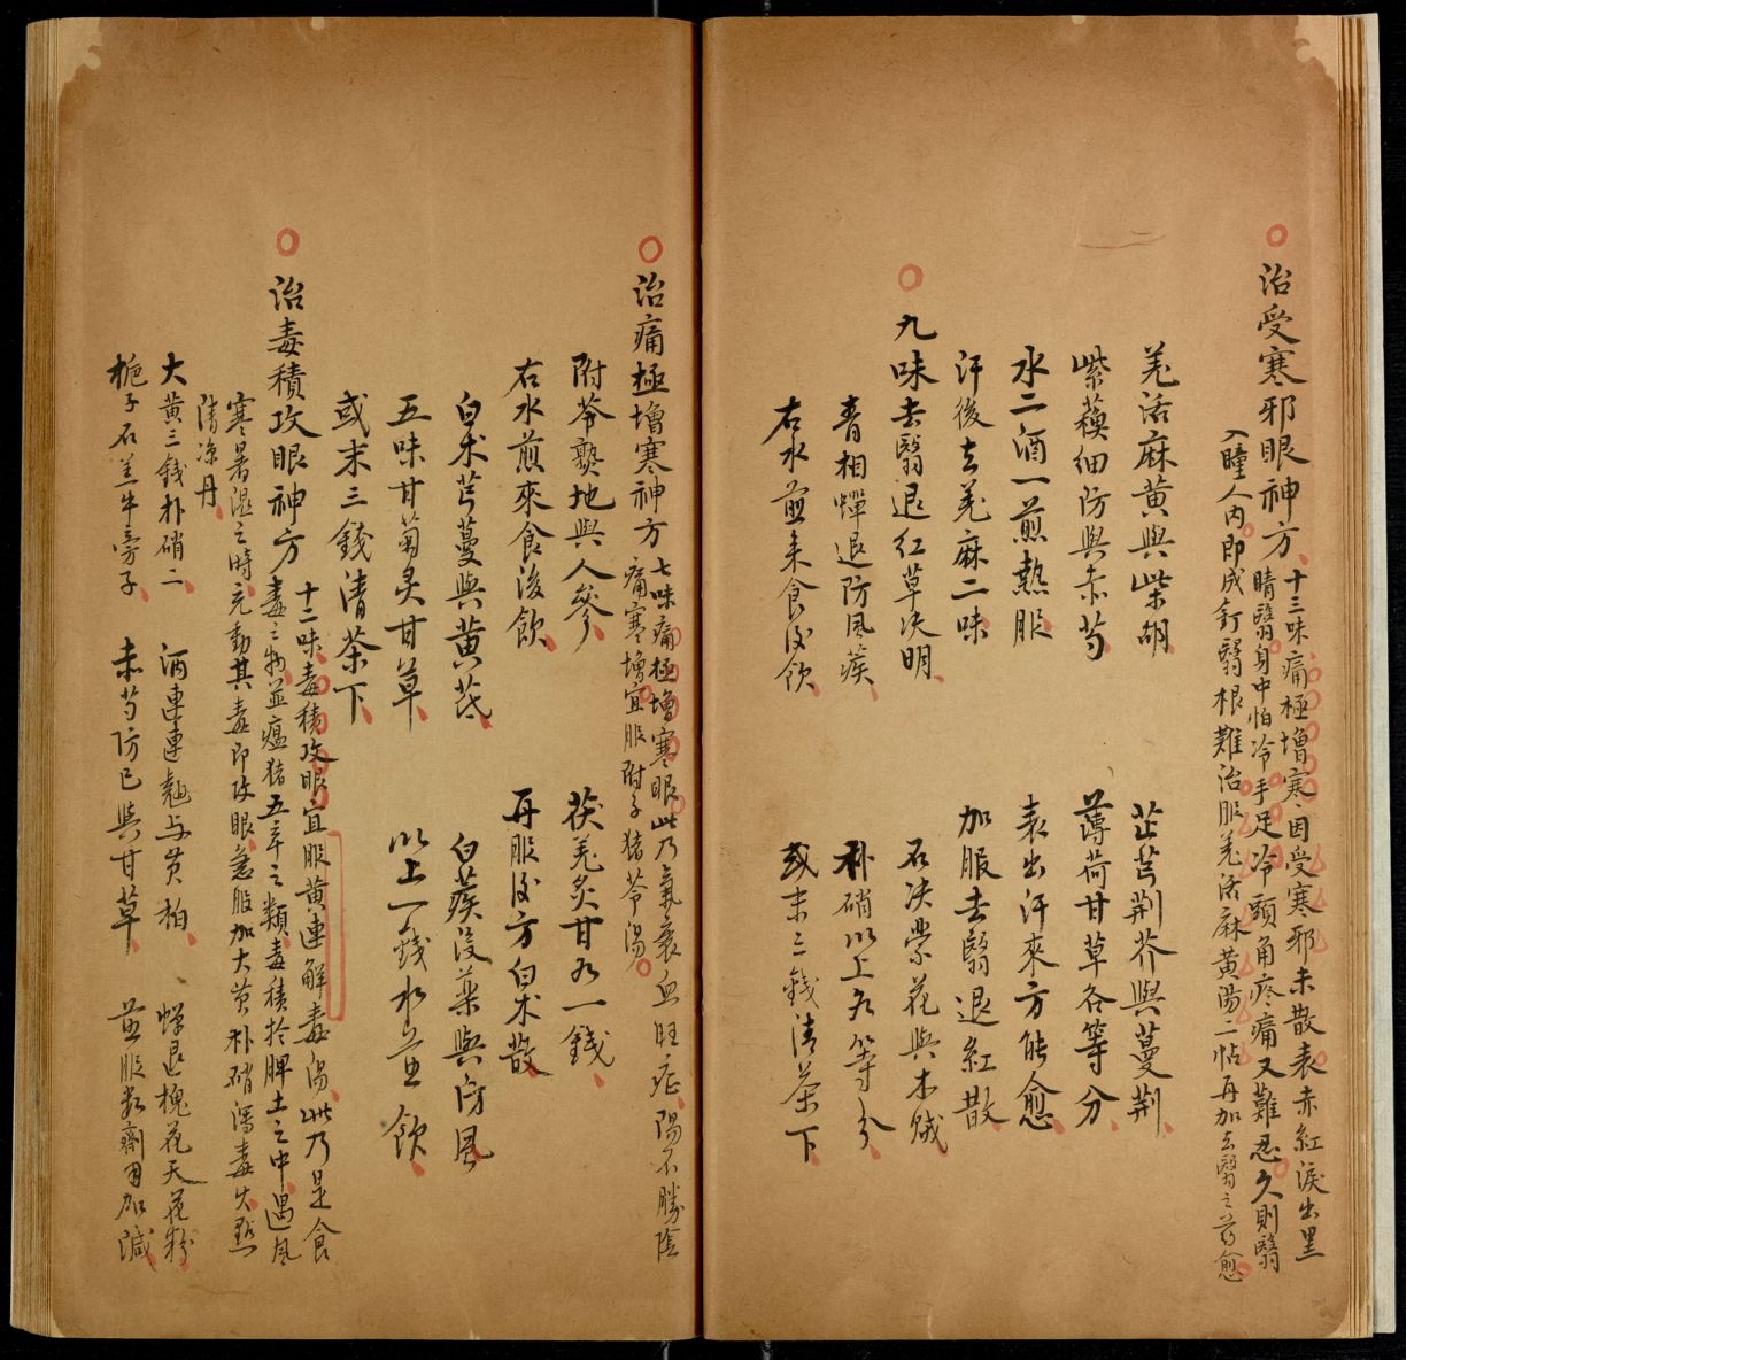 治受寒邪眼神方
十三味痛極增寒因受寒邪未散表赤紅淚出黑
睛醫身中怕冷手足冷頭角疼痛又難忍久則醫
入瞳人內即成釘醫根難治服羌活麻黃湯二帖再加去醫之药愈
羌活麻黄與柴胡 芷芎荆芥與蔓荆
紫蘓细防與赤芍 薄荷甘草各等分
水二酒一煎熱服 表出汗來方能愈
汗後去羌麻二味 加服去醫退紅散
九味去醫退红草决明 石决蒙花與木賊
青相蟬退防風蒺 朴硝以上各等分
右水煎来食後飲 或末三錢清茶下
治痛極增寒神方
七味痛極增寒眼此乃氣衰血旺症陽不勝陰
痛寒增宜服附子猪苓湯
附苓熟地與人參 茯羌炙甘各一錢
右水煎來食後飲 再服後方白术散
白术芎蔓與黄芪 白蒺沒藥與防風
五味甘菊炙甘草 以上一錢水煎飲
或末三錢清茶下
治毒積攻眼神方
十二味毒積攻眼宜服黄連解毒湯此乃是食
毒之物並瘟猪五辛之類毒積於脾土之中遇風
寒暑濕之時充動其毒即攻眼急服加大黄朴硝瀉毒火點
清凉丹
大黄三錢朴硝二 酒連連翹与黄柏 蟬退槐花天花粉
梔子石羔牛旁子 赤芍防已與甘草 煎服数劑用加減